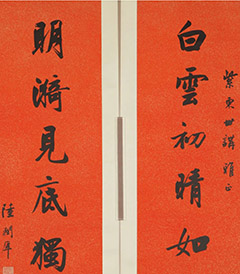 紫東世講雅正
白雲初晴如
明漪見底獨
陸潤庠